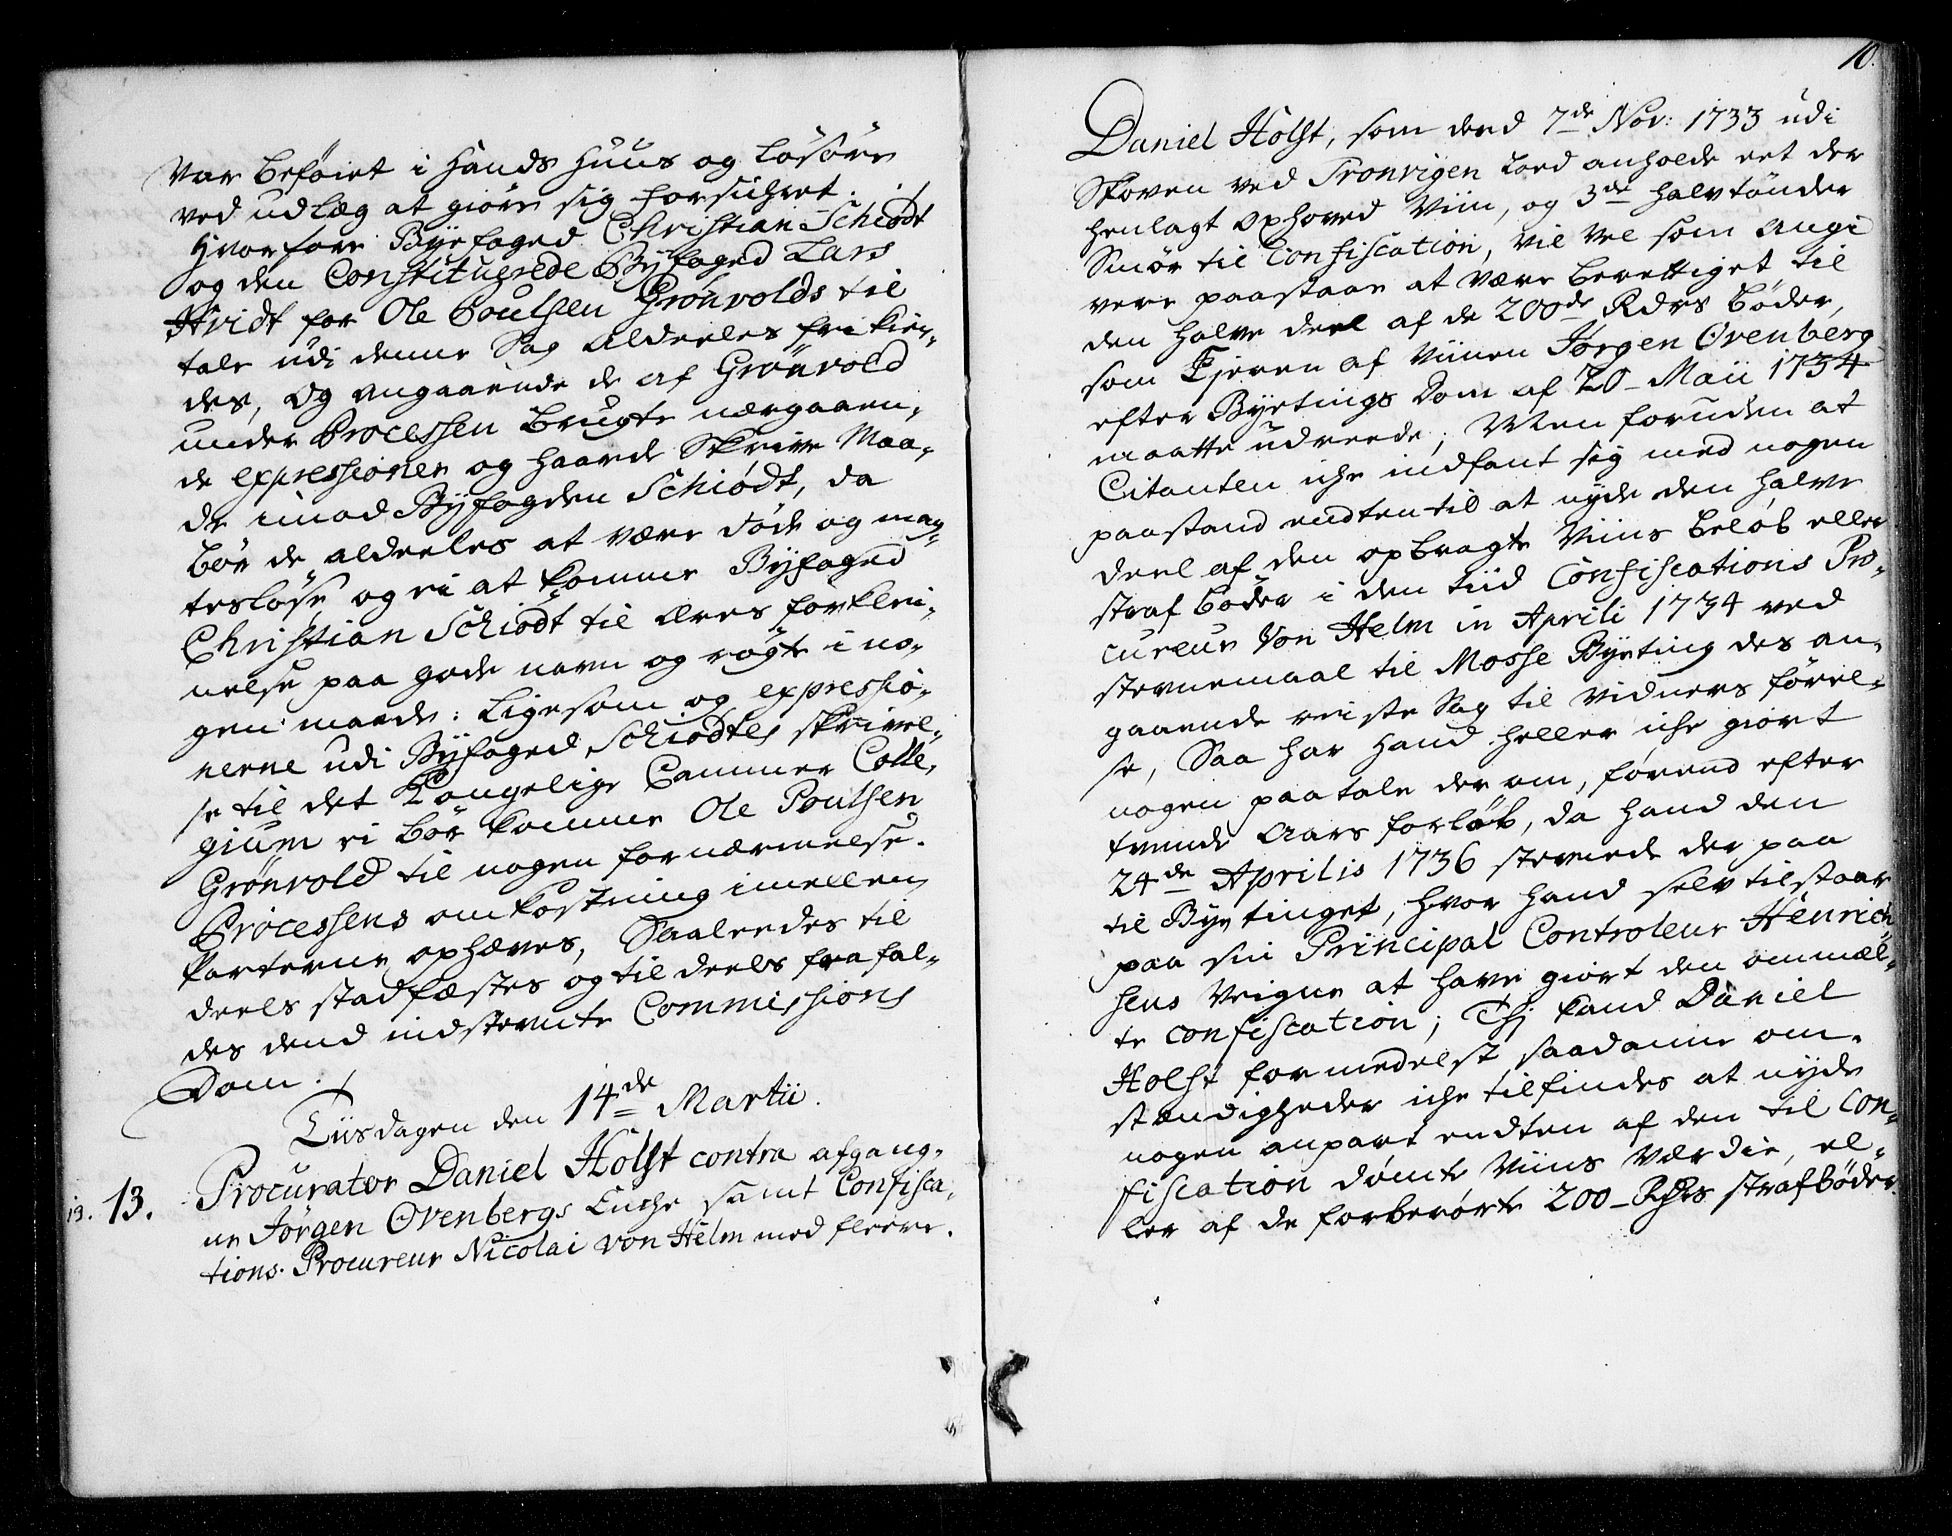 var beføiet i hands huus og løsøre
ved udlæg at giøre sig forsichret.
Hvorfore Byefoged Christian Schiødt
og den Constituerede Byfoged Lars
Hvidt for Ole Poulsen Grønvolds til
tale udi denne Sag aldeeles frikien¬
des, og angaaende de af Grønvold
under Processen brugte nærgaaen¬
de expressioner og haarde Skrive Maa¬
de imod Byfogden Schiødt, da
bør de aldeeles at være døde og mag¬
tesløse og ei at komme Byfoged
Christian Schiødt til æres forklei¬
nelse paa gode navn og røgte i no¬
gen maade: Ligesom og expressio¬
nerne udi Byfoged Schiødtes skrivel¬
se til det Kongelige Cammer Colle¬
gium ei bør komme Ole Poulsen
Grønvold til nogen fornærmelse.
Processens omkostning imellem
Parterne ophæves, Saaleedes til
deels stadfæstes og til deels frafal¬
des dend indstevnte Commissions
Dom.
Tiisdagen den 14de Martii.
13. 13. Procurator Daniel Holst contra afgang¬
ne Jørgen Ovenbergs Enche samt Confisca¬
tions-Procureur Nicolai von Helm med fleere.
10.
Daniel Holst, som dend 7de Nov: 1733 udi
Skoven ved Tronvigen lod anholde eet der
henlagt Oxhoved Viin, og 3de halvtønder
Smør til Confiscation, vil vel som Angi
vere paastaae at være berettiget til
den halve deel af de 200de Rdrs bøder,
som Ejeren af Viinen Jørgen Ovenberg
efter Byetings Dom af 20 Maii 1734
maatte udreede; Men foruden at
Citanten iche indfant sig med nogen
paastand endten til at nyde den halve
deel af den opbragte Viins beløb eller
straf bøder i den tiid Confiscations Pro¬
cureur Von Helm in Aprili 1734 ved
stevnemaal til Mosse Byeting des an¬
gaaende reiste Sag til vidners førel¬
se, Saa har hand heller iche giort
nogen paatale der om, førend efter
tvende Aars forløb, da hand den
24de Aprilis 1736 stevnede der paa
til Byetinget, hvor hand selv tilstaar
paa sin Principal Controleur Henrich¬
sens Veigne at have giort den ommæl¬
te confiscation; Thj kand Daniel
Holst formedelst saadanne om¬
stændigheder iche tilfindes at nyde
nogen anpart endten af den til con¬
fiscation dømte Viins Værdie, el¬
ler af de forberørte 200 Rdrs strafbøder